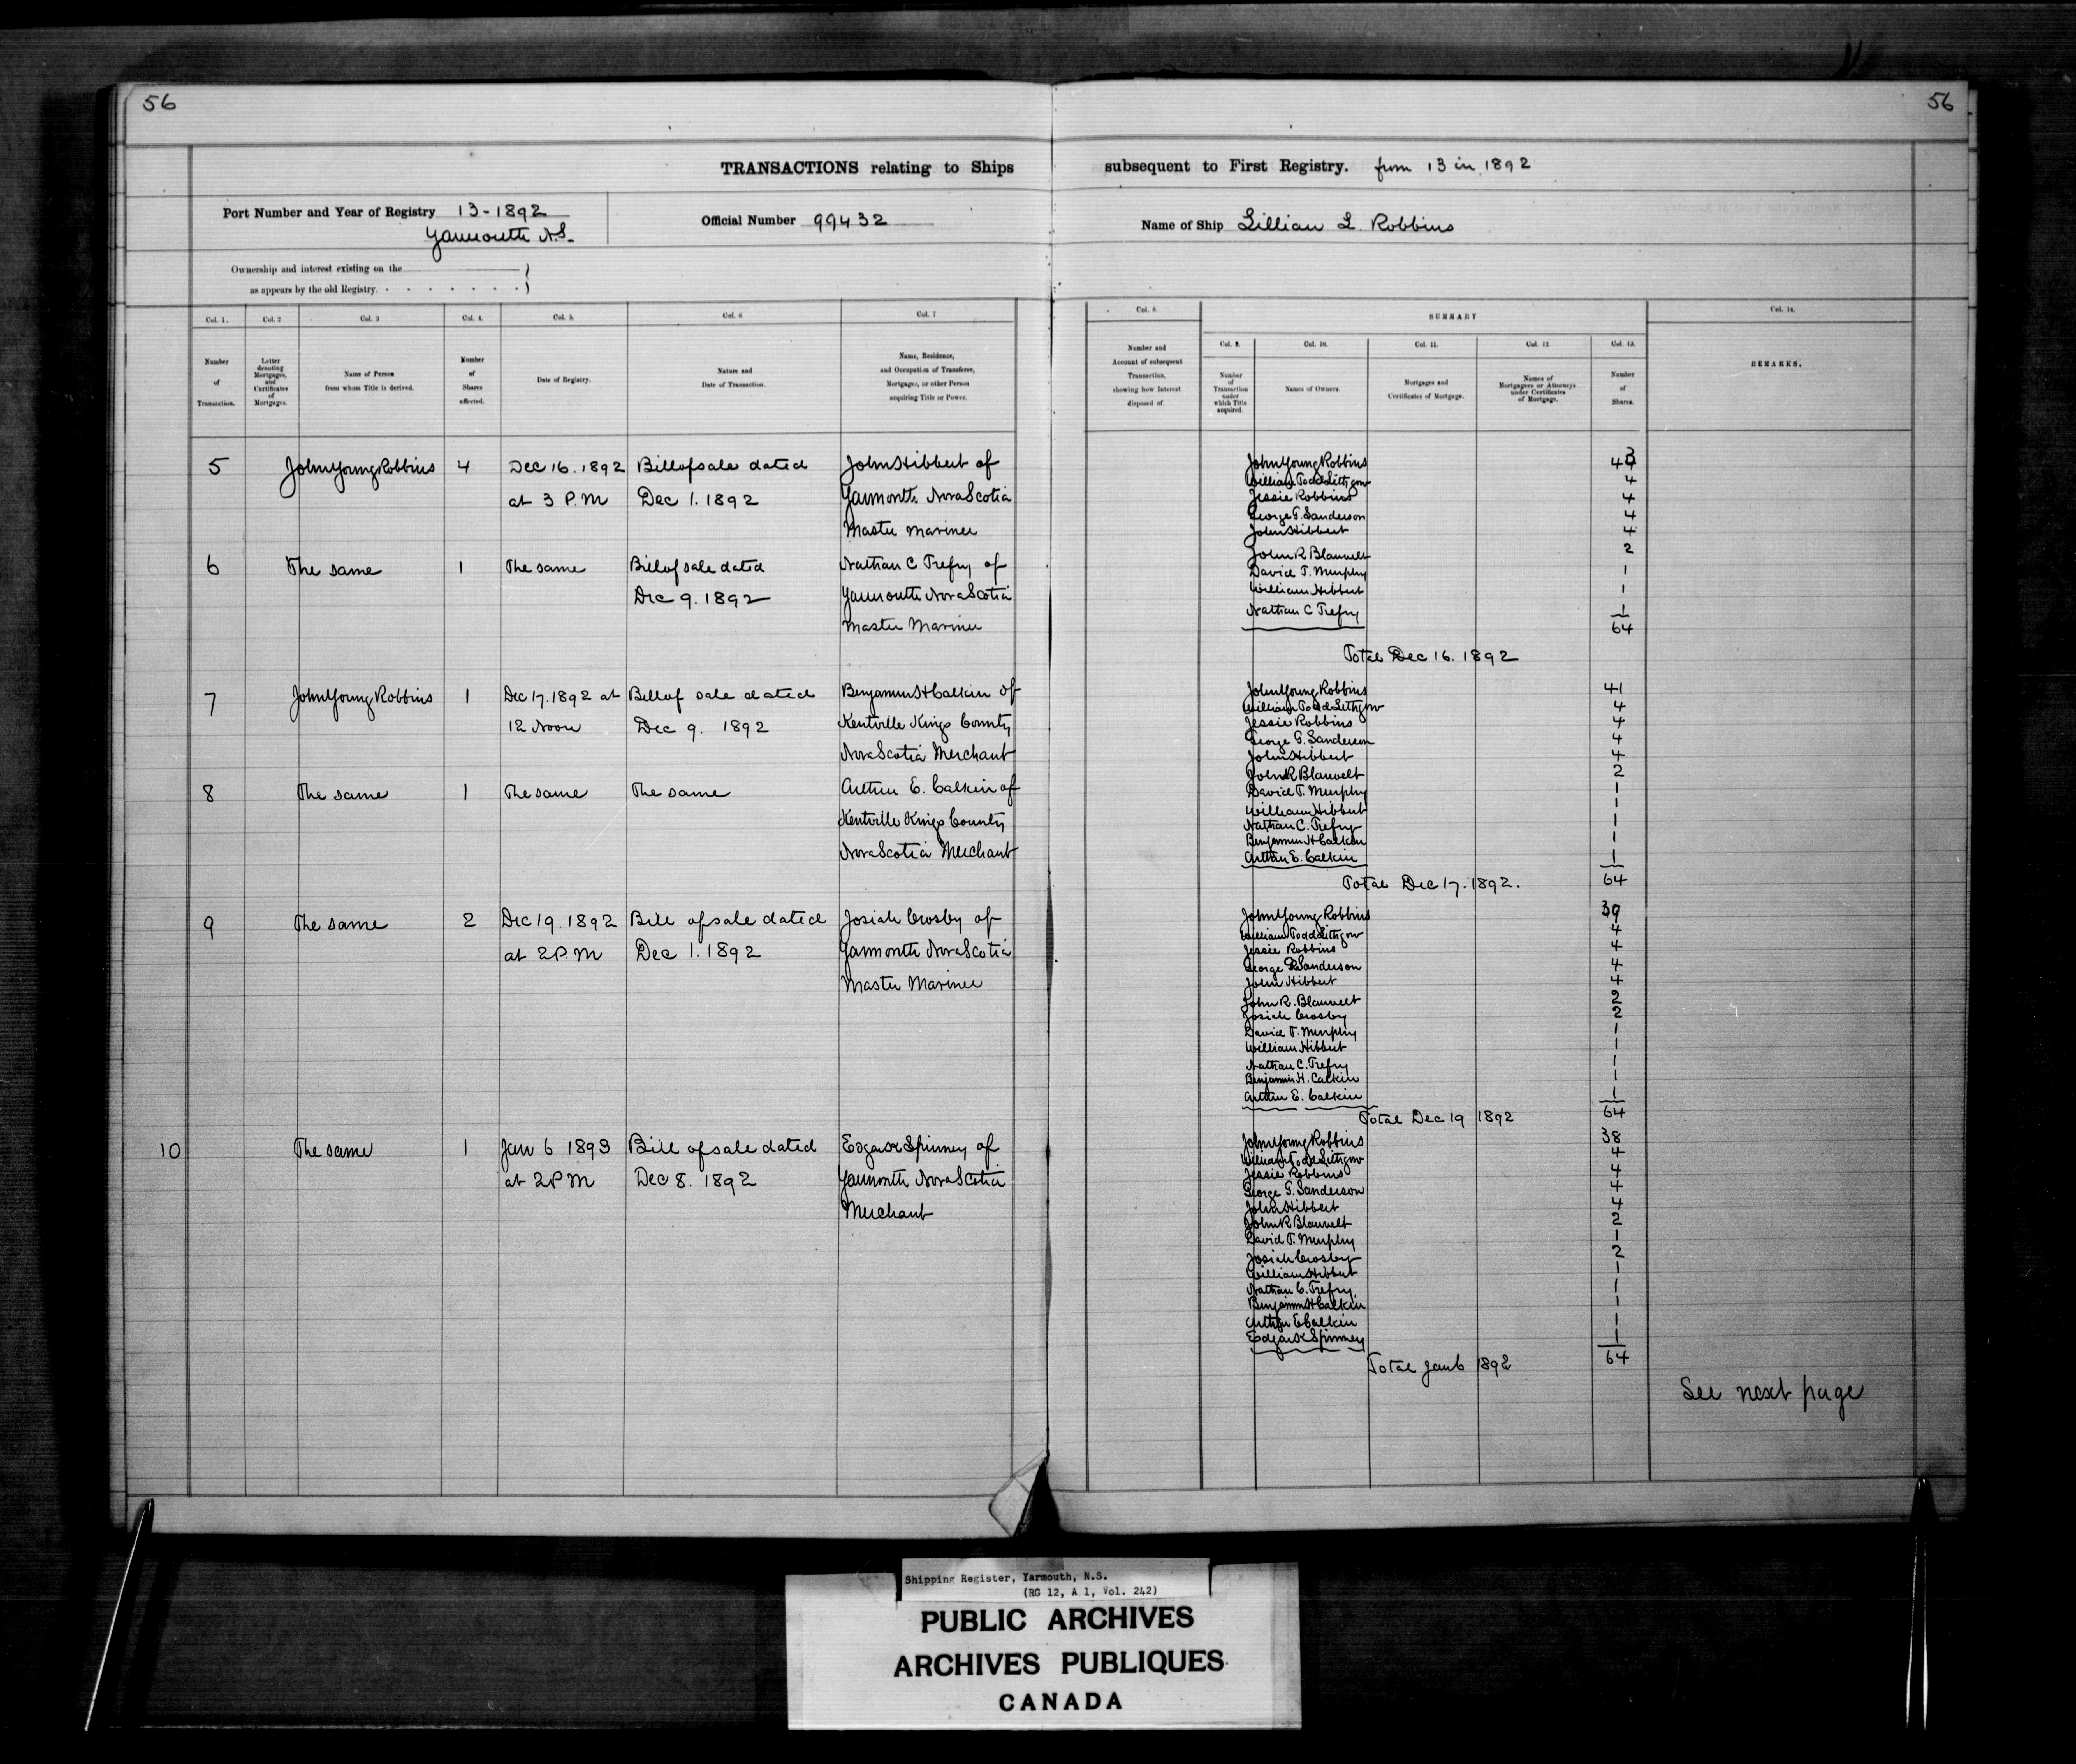 56
56
TRANSACTIONS relating to Ships subsequent to First Registry. from 13 in 1892
Port Number and Year of Registry 13-1892
Yarmouth N.S.
Official Number 99432
Name of Ship Lillian L. Robbins
Ownership and interest existing on the
as appears by the old Registry.
Col. 1.
Number
of
Transaction.
Col. 2
Letter
denoting
Mortgages,
and
Certificates
of
Mortgages.
Col. 3
Name of Person
from whom Title is derived.
Col. 4.
Number
of
Shares
affected.
Col. 5.
Date of Registry.
Col. 6
Nature and
Date of Transaction.
Col. 7
Name, Residence,
and Occupation of Transferee,
Mortgagee, or other Person
acquiring Title or Power.
Col. 8.
Number and
Account of subsequent
Transaction,
showing how Interest
disposed of.
SUMMARY
Col. 9.
Number
of
Transaction
under
which Title
acquired.
Col. 10.
Names of Owners.
Col. 11.
Mortgages and
Certificates of Mortgage.
Col. 12
Names of
Mortgagees or Attorneys
under Certificates
of Mortgage.
Col. 13.
Number
of
Shares.
Col. 14.
REMARKS.
5 John Young Robbins 4 Dec 16. 1892 Bill of sale dated John Hibbert of
at 3 P.M Dec 1. 1892 Yarmouth Nova Scotia
Master Mariner
6 The same 1 The same Bill of sale dated Nathan C Trefry of
Dec 9. 1892 Yarmouth Nova Scotia
Master Mariner
7 John Young Robbins 1 Dec 17. 1892 at Bill of sale dated Benjamin H Calkin of
12 Noon Dec 9. 1892 Kentville Kings County
Nova Scotia Merchant
8 The same 1 The same The same Arthur E. Calkin of
Kentville Kings County
Nova Scotia Merchant
9 The same 2 Dec 19. 1892 Bill of sale dated Josiah Crosby of
at 2 P.M Dec 1. 1892 Yarmouth Nova Scotia
Master Mariner
10 The same 1 Jan 6 1893 Bill of sale dated Edgar K Spinney of
at 2 P M Dec 8. 1892 Yarmouth Nova Scotia
Merchant
John Young Robbins 43
William Todd Lithgow 4
Jessie Robbins 4
George T. Sanderson 4
John Hibbert 4
John R Blauvelt 2
David T. Murphy 1
William Hibbert 1
Nathan C Trefry 1
64
Total Dec 16. 1892
John Young Robbins 41
William Todd Lithgow 4
Jessie Robbins 4
George T. Sanderson 4
John Hibbert 4
John R Blauvelt 2
David T. Murphy 1
William Hibbert 1
Nathan C. Trefry 1
Benjamin H Calkin 1
Arthur E. Calkin 1
Total Dec 17. 1892. 64
John Young Robbins 39
William Todd Lithgow 4
Jessie Robbins 4
George T Sanderson 4
John Hibbert 4
John R. Blauvelt 2
Josiah Crosby 2
David T. Murphy 1
William Hibbert 1
Nathan C. Trefry 1
Benjamin H. Calkin 1
Arthur E. Calkin 1
Total Dec 19 1892 64
John Young Robbins 38
William Todd Lithgow 4
Jessie Robbins 4
George T. Sanderson 4
John Hibbert 4
John R Blauvelt 2
David T. Murphy 1
Josiah Crosby 2
William Hibbert 1
Nathan C. Trefry 1
Benjamin H Calkin 1
Arthur E Calkin 1
Edgar K Spinney 1
Total Jan 6 1892 64
See next page
Shipping Register, Yarmouth, N.S.
(RG 12, A 1, Vol. 242)
PUBLIC ARCHIVES
ARCHIVES PUBLIQUES
CANADA